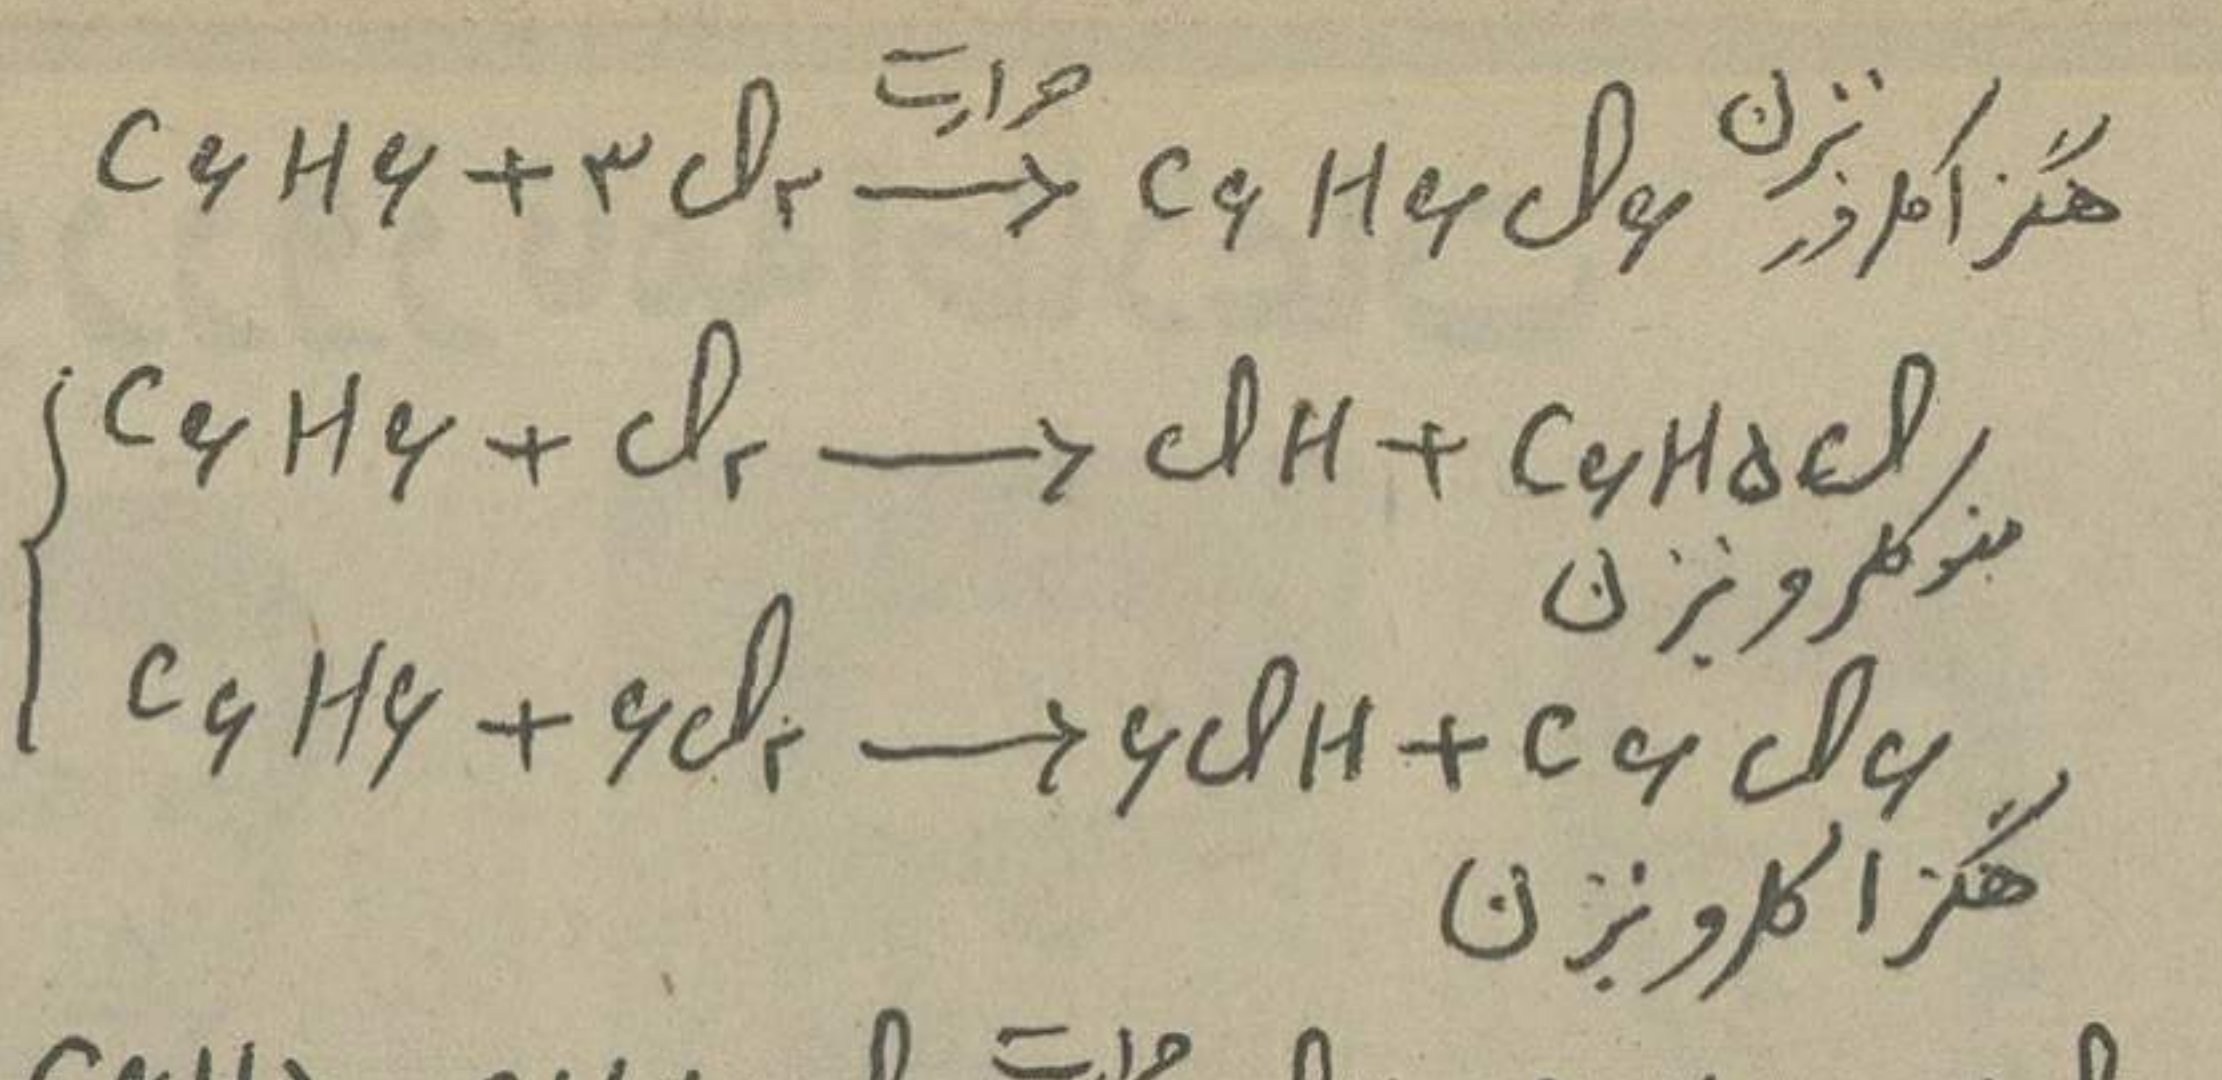 حرارت
C۶H۶ + ۳Cl۲ → C۶H۶Cl۶ هگزاکلرور بنزن
C۶H۶ + Cl۲ → ClH + C۶H۵Cl
منوکلروبنزن
C۶H۶ + ۶Cl۲ → ۶ClH + C۶Cl۶
هگزاکلروبنزن
حرارت